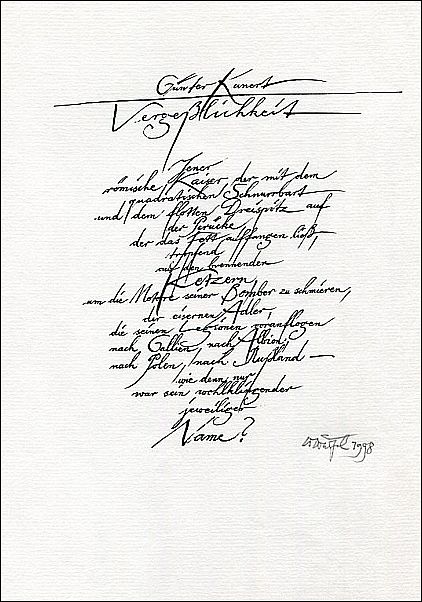 Günter Kunert
Vergeßlichkeit
Jener
römische Kaiser, der mit dem
quadratischen Schnurrbart
und dem flotten Dreispitz auf
der Perücke,
der das Fett auffangen ließ,
tropfend
aus den brennenden
Ketzern,
um die Motore seiner Bomber zu schmieren,
der eisernen Adler,
die seinen Legionen voranflogen
nach Gallien, nach Albion,
nach Polen, nach Rußland —
wie denn nur
war sein wohlklingender
jeweiliger
Name?
1998